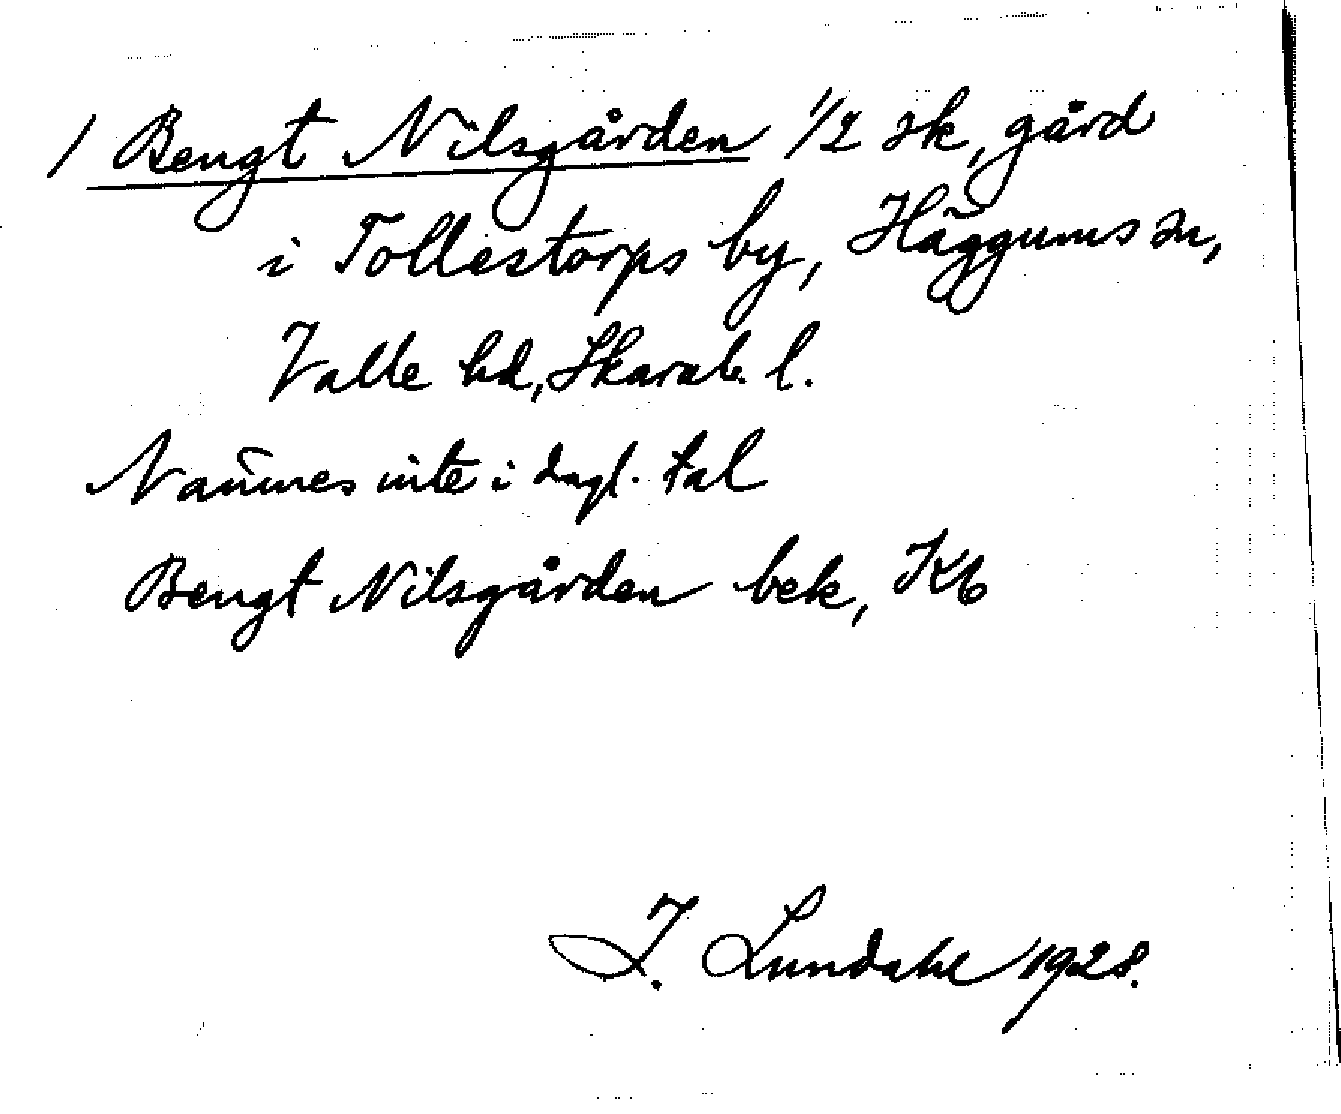 1 Bengt Nilsgården 1/2 sk, gård
i Tollestorps by, Häggums sn,
Valle hd, Skarab. l.
Nämnes inte i dagl. tal
Bengt Nilsgården bek, Kb
I. Lundahl 1928.